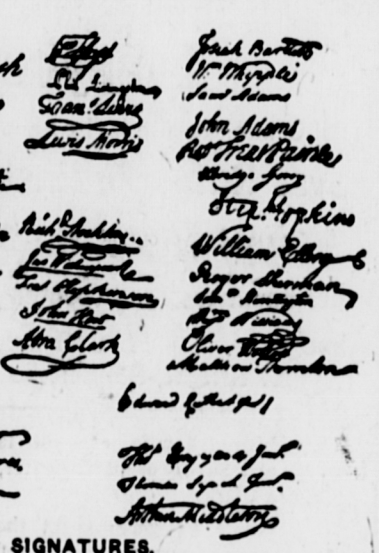 Phil. Livingston
Frans. Lewis
Lewis Morris
Richd. Stockton
Jno Witherspoon
Fras. Hopkinson
John Hart
Abra Clark
Josiah Bartlett
Wm. Whipple
Saml Adams
John Adams
Robt Treat Paine
Elbridge Gerry
Step. Hopkins
William Ellery
Roger Sherman
Samll Huntington
Wm. Williams
Oliver Wolcott
Matthew Thornton
Edward Rutledge
Thos Heyward Junr.
Thomas Lynch Junr.
Arthur Middleton
SIGNATURES.